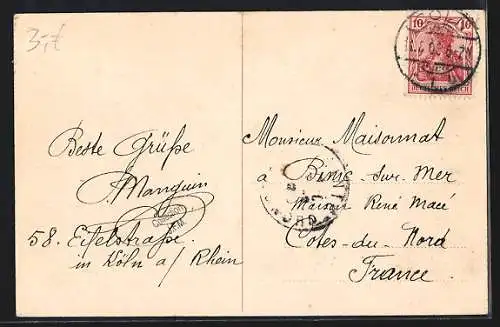 3,-
10 10
DEUTSCHES REICH
Beste Grüße
Manguin
58. Eifelstraße
in Köln a/ Rhein
Monsieur Maisonnat
à Binic-sur-Mer
Maison René Macé
Côtes-du-Nord
France